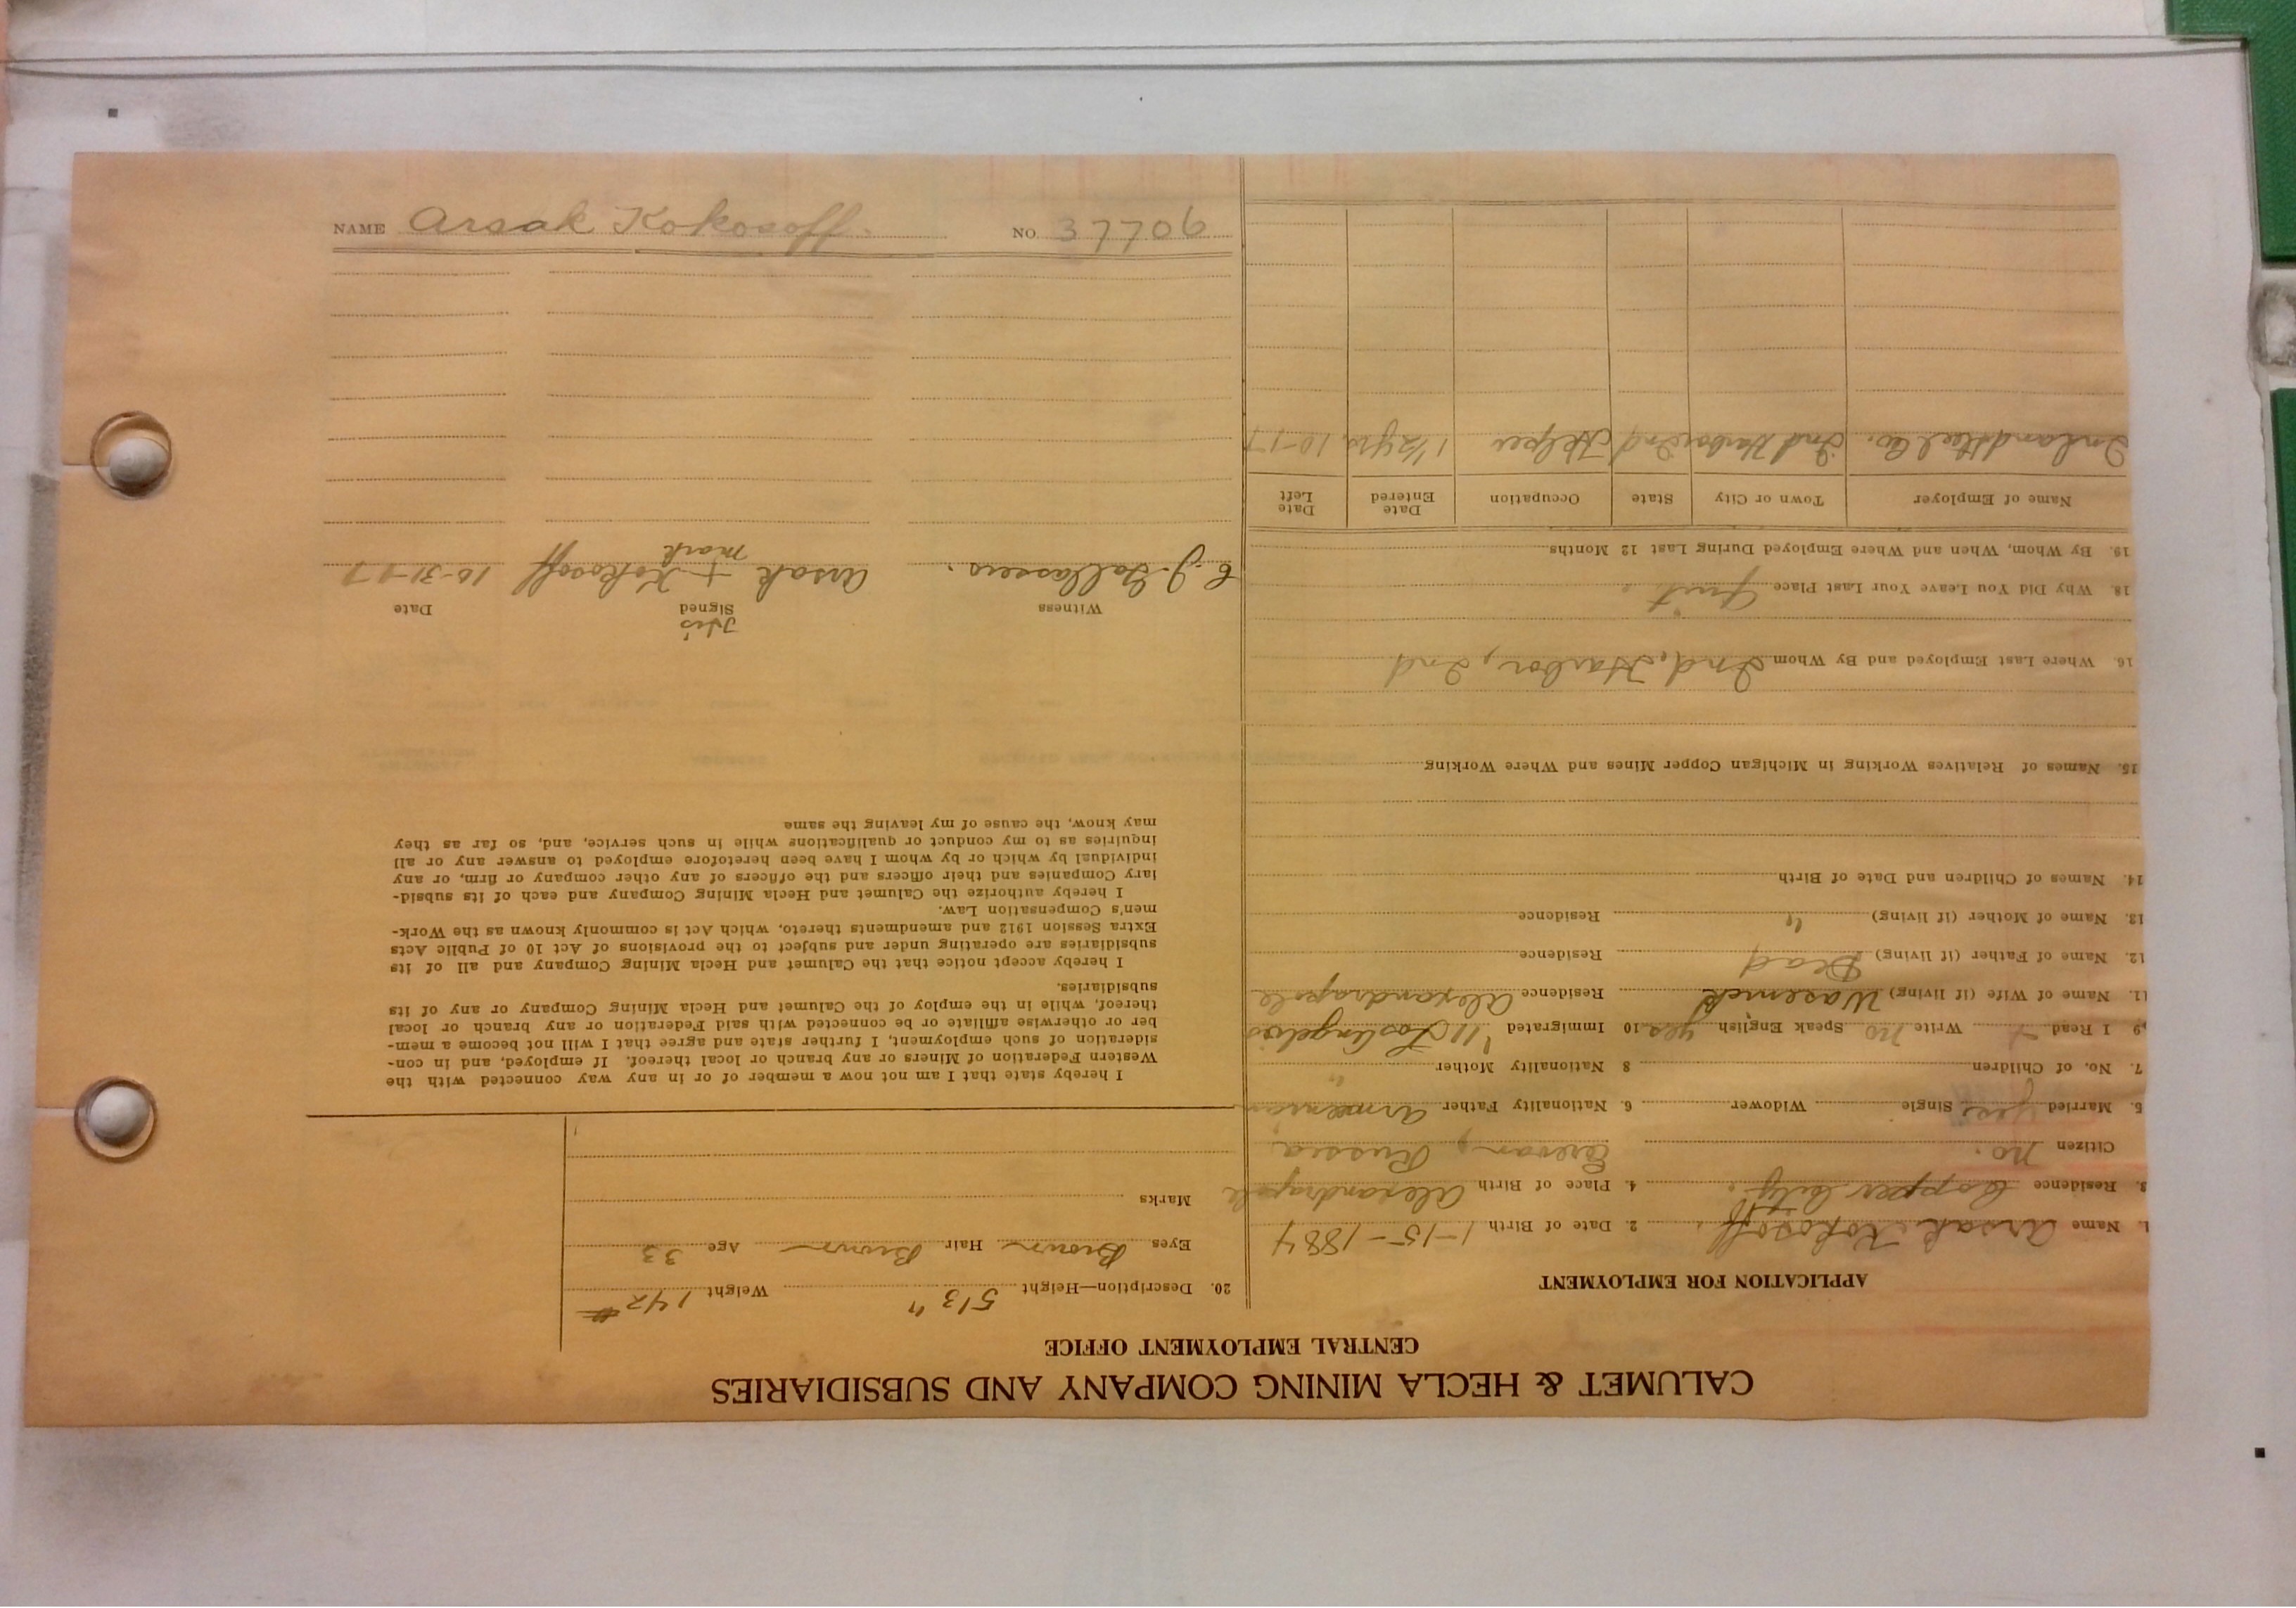 CALUMET & HECLA MINING COMPANY AND SUBSIDIARIES
CENTRAL EMPLOYMENT OFFICE
APPLICATION FOR EMPLOYMENT
1. Name Arsak Kokosoff. 2. Date of Birth 1-15-1884
3. Residence Copper City. 4. Place of Birth Alexandrapole
Citizen no. Erevan, Russia
5. Married Yes Single Widower 6. Nationality Father Armenian
7. No. of Children 8 Nationality Mother "
9. I Read Write no Speak English yes 10 Immigrated '11
11. Name of Wife (if living) Residence Alexandrapole
12. Name of Father (if living) Dead Residence
13. Name of Mother (if living) " Residence
14. Names of Children and Date of Birth
15. Names of Relatives Working in Michigan Copper Mines and Where Working
16. Where Last Employed and By Whom Ind. Harbor, Ind
18. Why Did You Leave Your Last Place Quit.
19. By Whom, When and Where Employed During Last 12 Months
Name of Employer Town or City State Occupation Date Entered Date Left
Inland Steel Co. Ind Harbor Ind Helper 1 1/2 yrs. 10-17
20. Description—Height 5 1 3" Weight 142 #
Eyes Brown Hair Brown Age 33
Marks
I hereby state that I am not now a member of or in any way connected with the
Western Federation of Miners or any branch or local thereof. If employed, and in con-
sideration of such employment, I further state and agree that I will not become a mem-
ber or otherwise affiliate or be connected with said Federation or any branch or local
thereof, while in the employ of the Calumet and Hecla Mining Company or any of its
subsidiaries.
I hereby accept notice that the Calumet and Hecla Mining Company and all of its
subsidiaries are operating under and subject to the provisions of Act 10 of Public Acts
Extra Session 1912 and amendments thereto, which Act is commonly known as the Work-
men's Compensation Law.
I hereby authorize the Calumet and Hecla Mining Company and each of its subsid-
iary Companies and their officers and the officers of any other company or firm, or any
individual by which or by whom I have been heretofore employed to answer any or all
inquiries as to my conduct or qualifications while in such service, and, so far as they
may know, the cause of my leaving the same
Witness Signed Date
His
Arsak + Kokosoff 10-31-17
mark
NAME Arsak Kokosoff. NO. 37706